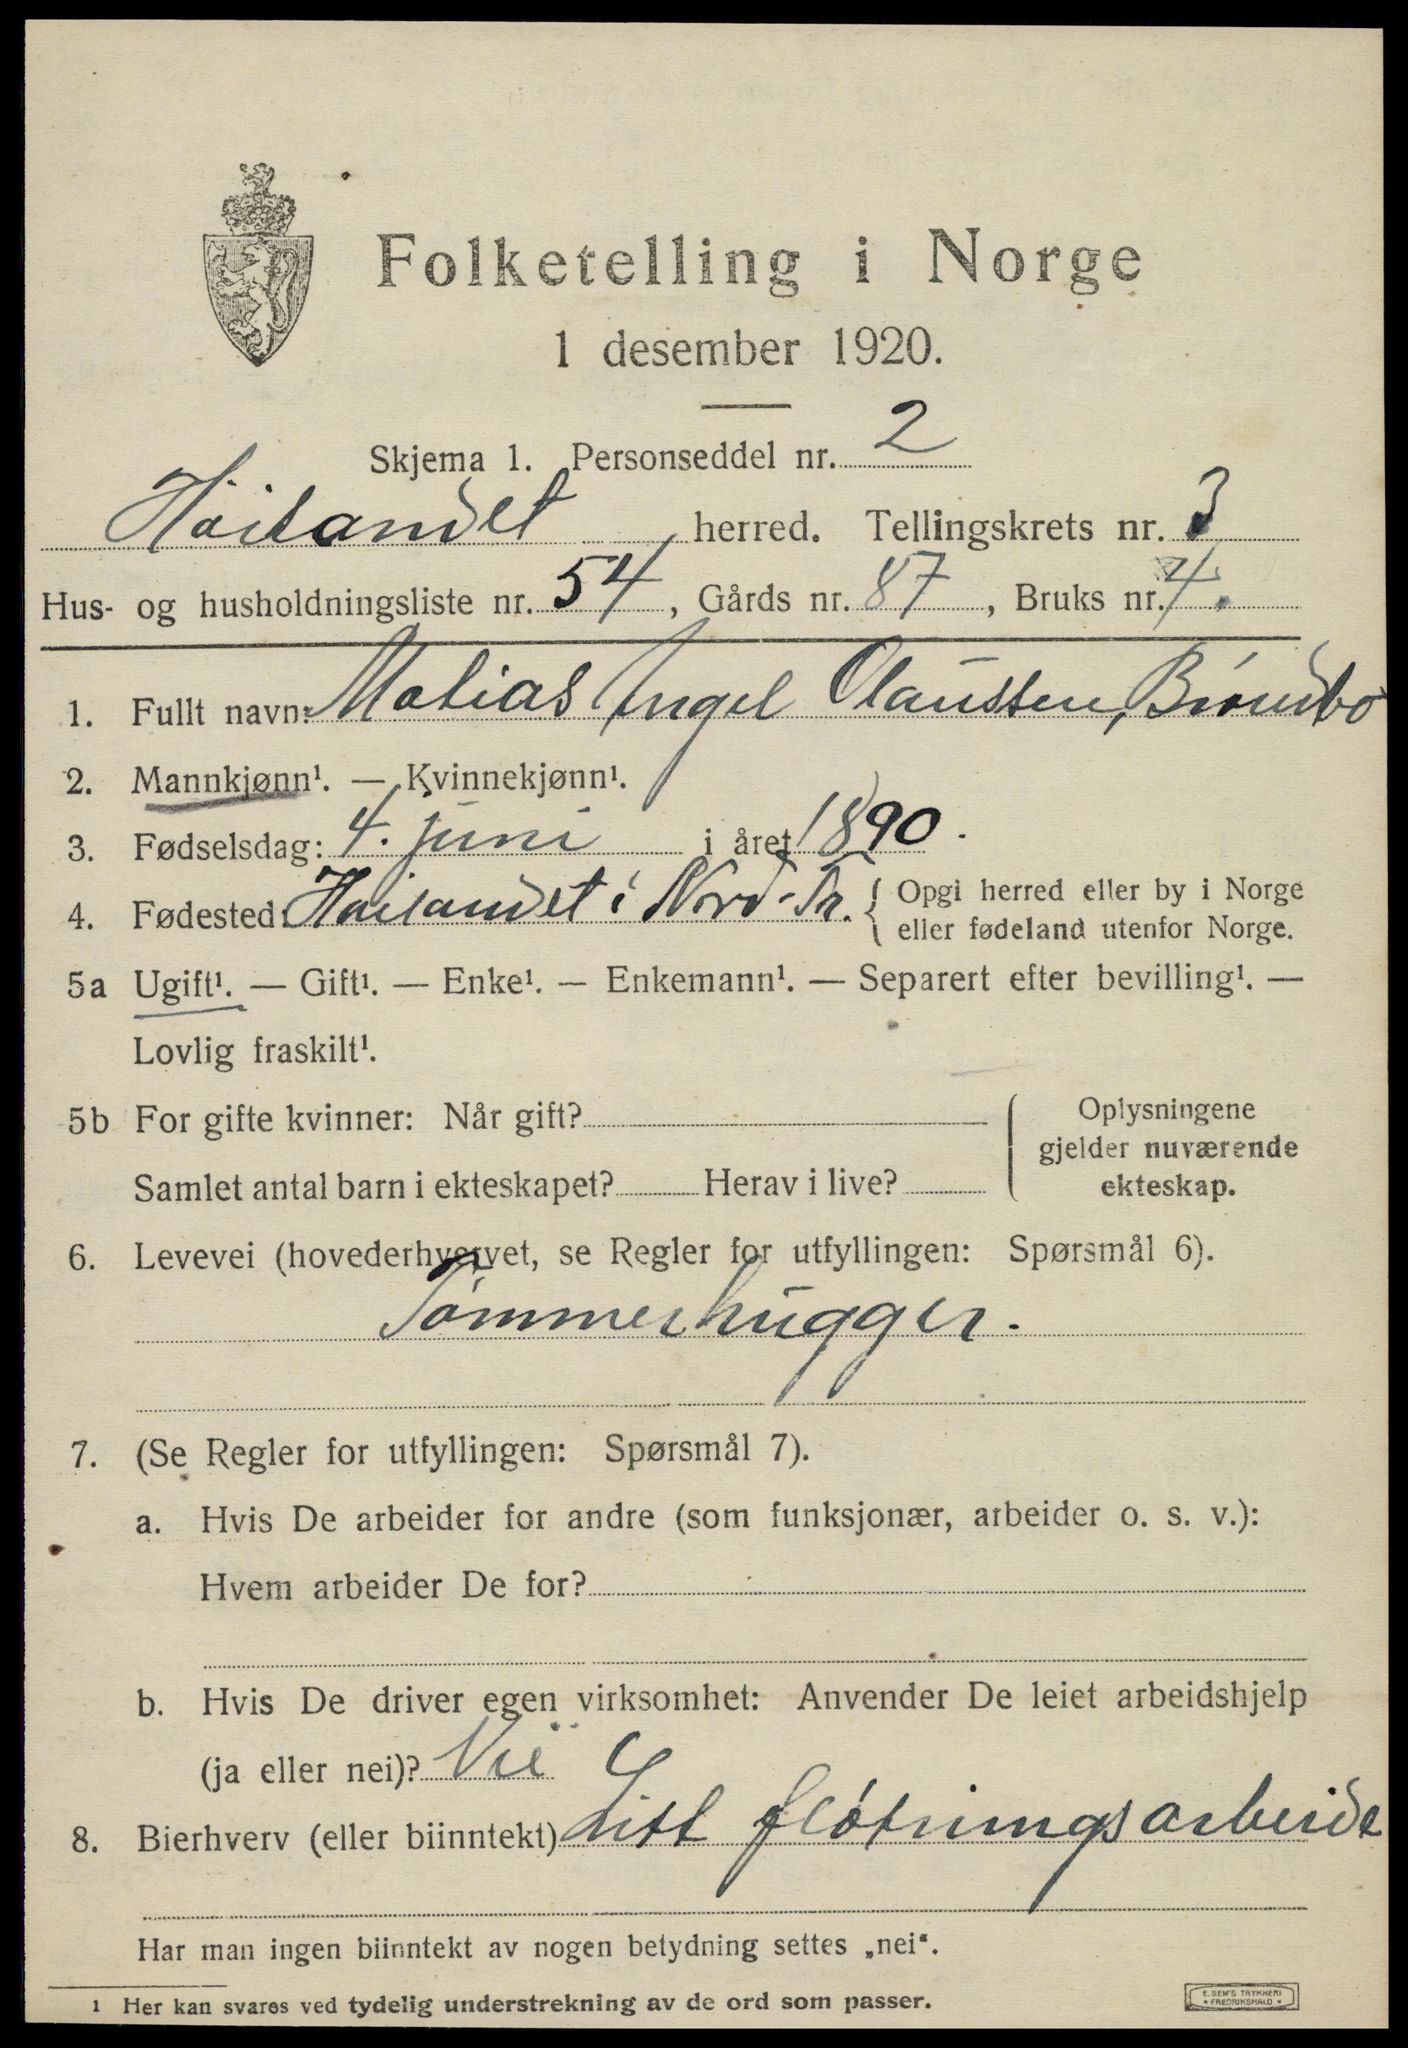 Folketelling i Norge
1 desember 1920.
Skjema 1. Personseddel nr. 2
Høilandet herred. Tellingskrets nr. 3
Hus- og husholdningsliste nr. 54, Gårds nr. 87, Bruks nr. 4.
1. Fullt navn: Matias Ingel Olaussen, Brømbo
2. Mannkjønn¹. — Kvinnekjønn¹.
3. Fødselsdag: 4. juni i året 1890.
4. Fødested: Høilandet i Nord-Tr. { Opgi herred eller by i Norge
eller fødeland utenfor Norge.
5a Ugift¹. — Gift¹. — Enke¹. — Enkemann¹. — Separert efter bevilling¹. —
Lovlig fraskilt¹.
5b For gifte kvinner: Når gift?
Samlet antal barn i ekteskapet? Herav i live?
Oplysningene
gjelder nuværende
ekteskap.
6. Levevei (hovederhvervet, se Regler for utfyllingen: Spørsmål 6).
Tømmerhugger.
7. (Se Regler for utfyllingen: Spørsmål 7).
a. Hvis De arbeider for andre (som funksjonær, arbeider o. s. v.):
Hvem arbeider De for?
b. Hvis De driver egen virksomhet: Anvender De leiet arbeidshjelp
(ja eller nei)? Nei
8. Bierhverv (eller biinntekt) Litt fløtningsarbeide
Har man ingen biinntekt av nogen betydning settes „nei“.
1 Her kan svares ved tydelig understrekning av de ord som passer.
E. SEM'S TRYKKERI
• FREDRIKSHALD •